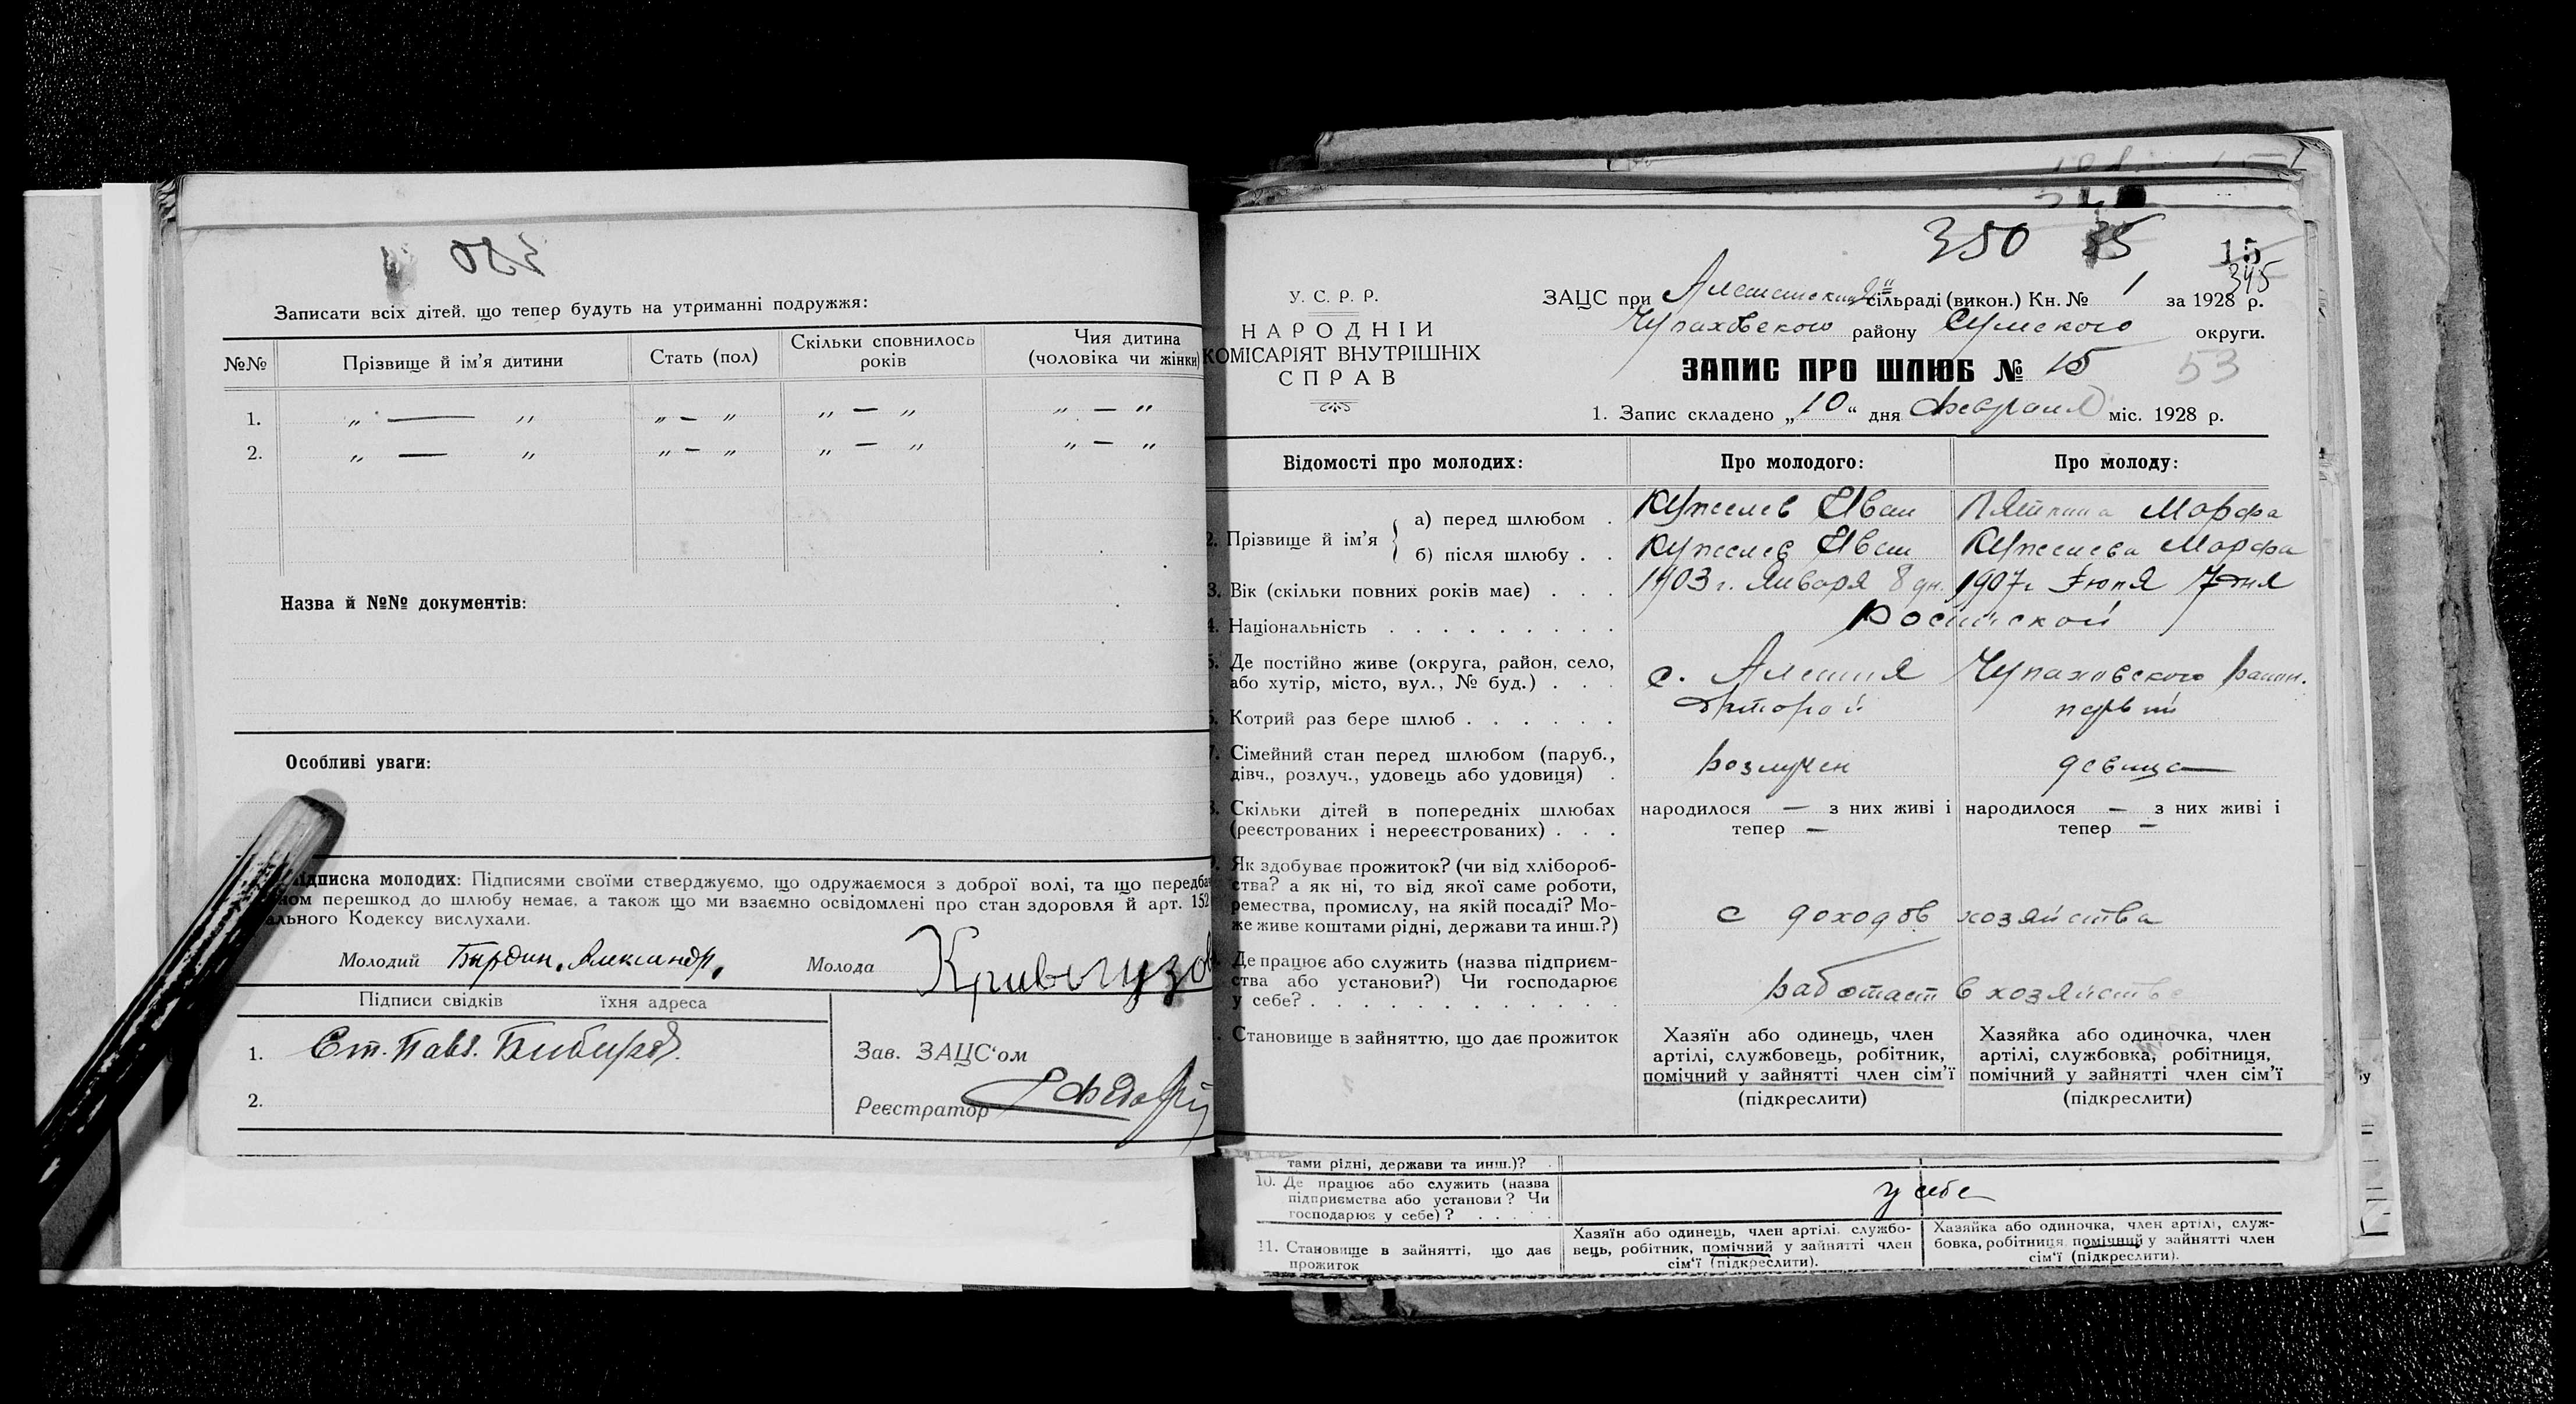 350
Записати всіх дітей, що тепер будуть на утриманні подружжя:
№№ Прізвище й ім'я дитини Стать (пол) Скільки сповнилось років Чия дитина (чоловіка чи жінки)
1. „ — „ „ — „ „ — „ „ — „
2. „ — „ „ — „ „ — „ „ — „
Назва й №№ документів:
Особливі уваги:
ідписка молодих: Підписями своїми стверджуємо, що одружаємося з доброї волі, та що передба
ном перешкод до шлюбу немає, а також що ми взаємно освідомлені про стан здоровля й арт. 152
ального Кодексу вислухали.
Молодий Бирдин Александр. Молода
Підписи свідків їхня адреса
1. Ст. Павл.
2.
Зав. ЗАЦС'ом
Реєстратор
350 35 15
345
У. С. Р. Р.
НАРОДНІЙ
КОМІСАРІЯТ ВНУТРІШНІХ
СПРАВ
ЗАЦС при сільраді (викон.) Кн. № 1 за 1928 р.
району Сумского округи.
ЗАПИС ПРО ШЛЮБ № 15 53
1. Запис складено „10“ дня Февраля міс. 1928 р.
Відомості про молодих: Про молодого: Про молоду:
2. Прізвище й ім'я
а) перед шлюбом . Иван Марфа
б) після шлюбу . . Иван Марфа
3. Вік (скільки повних років має) . . . 1903 г. Января 8 дн. 1907 г Июня 7 дня
4. Національність . . . . . . . . .
5. Де постійно живе (округа, район, село,
або хутір, місто, вул., № буд.) . . . с. Алешня Чупаховского
6. Котрий раз бере шлюб . . . . . . второй первый
7. Сімейний стан перед шлюбом (паруб.,
дівч., розлуч., удовець або удовиця) . розлучен девица
8. Скільки дітей в попередніх шлюбах
(реєстрованих і нереєстрованих) . . .
народилося — з них живі і тепер —
народилося — з них живі і тепер —
Як здобуває прожиток? (чи від хлібороб-
ства? а як ні, то від якої саме роботи,
ремества, промислу, на якій посаді? Мо-
же живе коштами рідні, держави та инш.?)
с доходов хозяйства
Де працює або служить (назва підприєм-
ства або установи?) Чи господарює
у себе? . . . . . . . . . . . . .
работает в хозяйстве
Становище в зайняттю, що дає прожиток
Хазяїн або одинець, член
артілі, службовець, робітник,
помічний у зайнятті член сім'ї
(підкреслити)
Хазяйка або одиночка, член
артілі, службовка, робітниця,
помічний у зайнятті член сім'ї
(підкреслити)
тами рідні, держави та инш.)?
10. Де працює або служить (назва
підприємства або установи? Чи
господарює у себе)? . . . . .
у себе
11. Становище в зайнятті, що дає
прожиток
Хазяїн або одинець, член артілі, службо-
вець, робітник, помічний у зайнятті член
сім'ї (підкреслити).
Хазяйка або одиночка, член артілі, служ-
бовка, робітниця, помічний у зайнятті член
сім'ї (підкреслити).